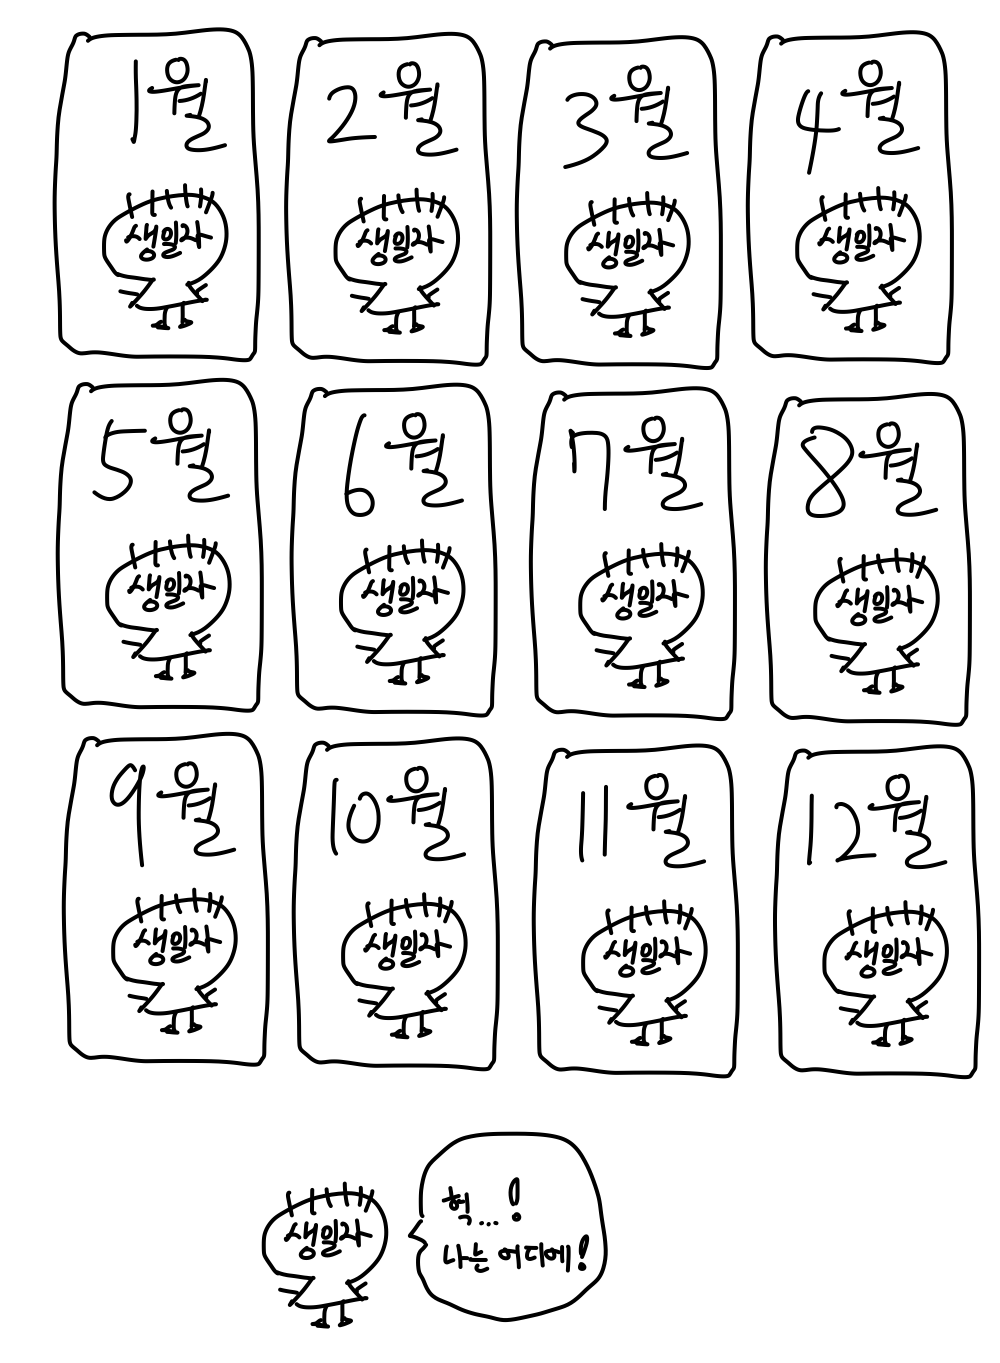 1월
생일자
2월
생일자
3월
생일자
4월
생일자
5월
생일자
6월
생일자
7월
생일자
8월
생일자
9월
생일자
10월
생일자
11월
생일자
12월
생일자
생일자
헉...!
나는 어디에!